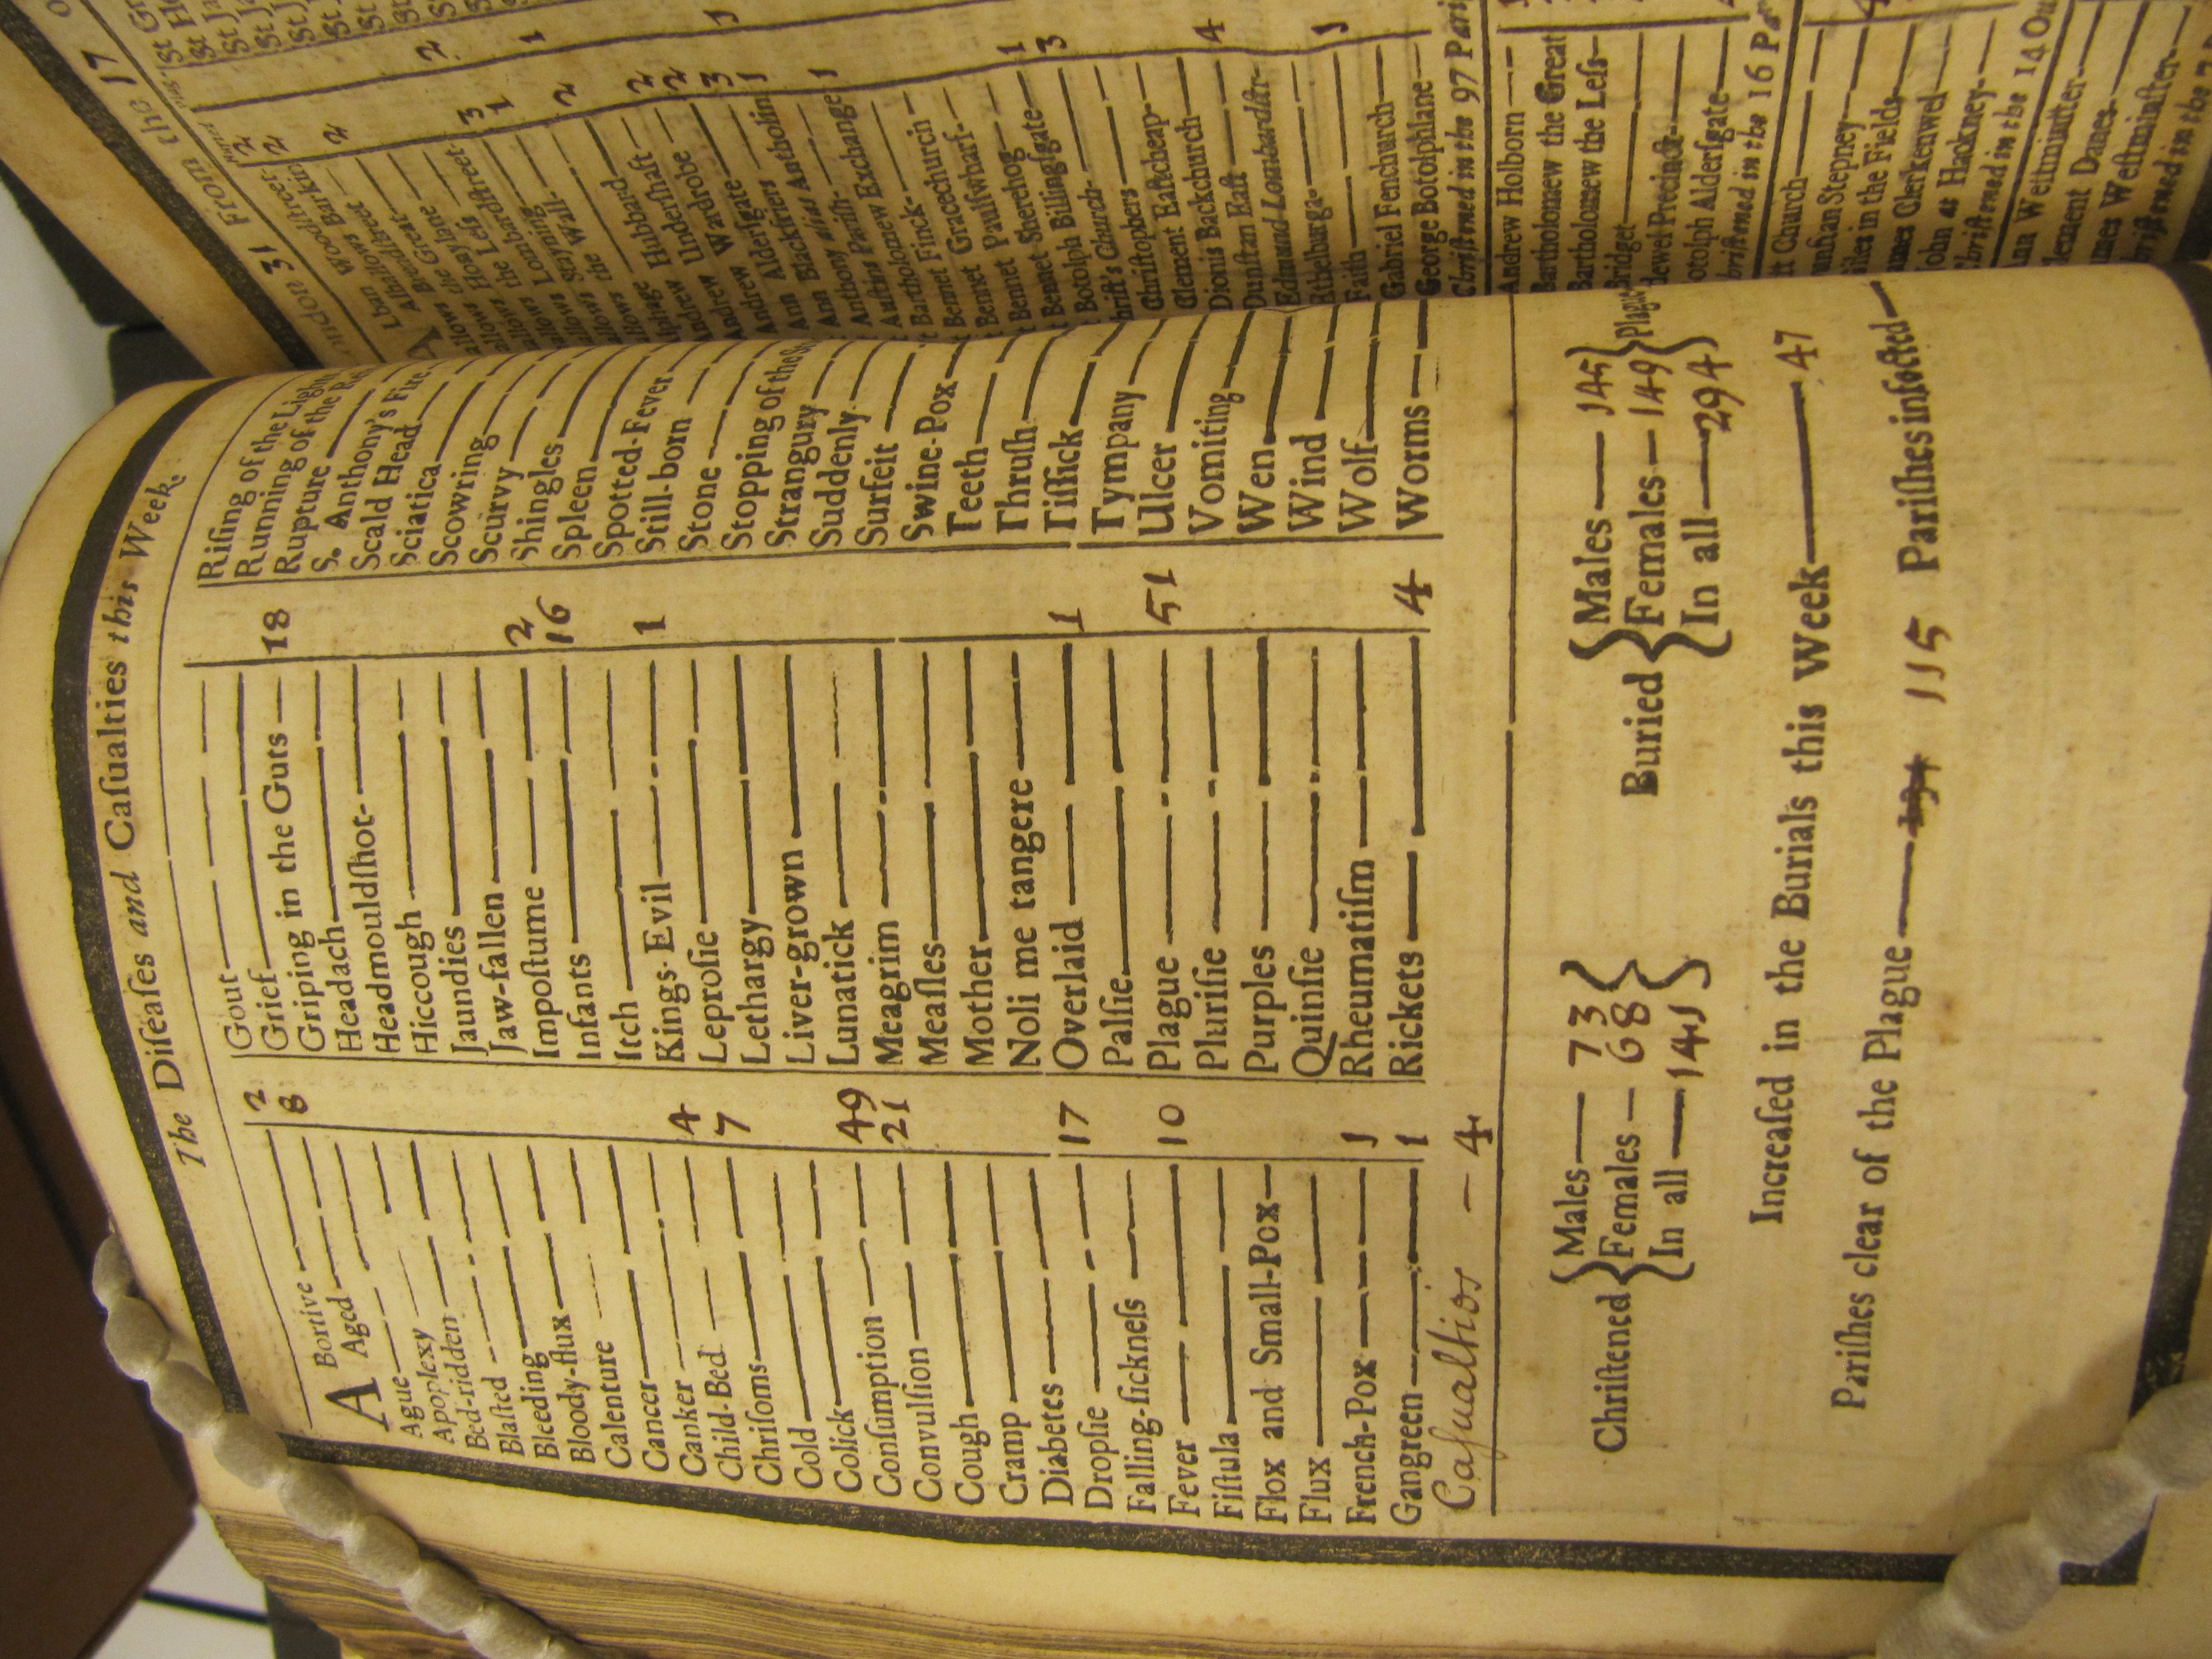 The Diſeaſes and Caſualties this Week.
A Bortive 2
Aged 8
Ague
Apoplexy
Bed-ridden
Blaſted
Bleeding
Bloody-flux
Calenture
Cancer
Canker
Child-Bed 4
Chriſoms 7
Cold
Colick
Conſumption 49
Convulſion 21
Cough
Cramp
Diabetes
Dropſie 17
Falling-ſickneſs
Fever 10
Fiſtula
Flox and Small-Pox
Flux
French-Pox 1
Gangreen 1
Caſualtios - 4
Gout
Grief
Griping in the Guts 18
Headach
Headmouldſhot
Hiccough
Jaundies
Jaw-fallen
Impoſtume 2
Infants 16
Itch
Kings-Evil 1
Leproſie
Lethargy
Liver-grown
Lunatick
Meagrim
Meaſles
Mother
Noli me tangere
Overlaid 1
Palſie
Plague 51
Pluriſie
Purples
Quinſie
Rheumatiſm
Rickets 4
Riſing of the Light
Running of the Rei
Rupture
S. Anthony's Fire
Scald Head
Sciatica
Scowring
Scurvy
Shingles
Spleen
Spotted-Fever
Still-born
Stone
Stopping of the
Strangury
Suddenly
Surfeit
Swine-Pox
Teeth
Thruſh
Tiſſick
Tympany
Ulcer
Vomiting
Wen
Wind
Wolf
Worms
Chriſtened { Males 73
Females 68
In all 141 }
Buried { Males 145
Females 149
In all 294 } Plague
Increaſed in the Burials this Week 47
Pariſhes clear of the Plague 115 Pariſhes infected
ndon 31 From the 17
Lban Woodſtreet 2
Alhallows Barkin 2
Alhallows Breadſtreet 2
allows the Great
allows Honylane
allows the Leſs 3
allows Lombardſtreet 1
allows Stayning
allows the Wall 2
Hubbard
Underſhaft 2
Andrew Undrobe 2
Andrew Wardrobe 3
Ann Alderſgate 1
Ann Blackfriers
Anthony alias Antholin 1
Auſtins Pariſh
Bartholomew Exchange
Bennet Finck
Bennet Gracechurch
Bennet Paulſwharf
Bennet Sherehog
Botolph Billingſgate 1
hriſt's Church 3
Chriſtophers
Clement Eaſtcheap
Dionis Backchurch 4
Dunſtan Eaſt
Edmund Lombardſtr
Ethelburga
Faith 1
Gabriel Fenchurch
George Botolphlane
Chriſtned in the 97 Pari
Andrew Holborn
Bartholomew the Great
Bartholomew the Leſs
Bridget
dewel Precinct
otolph Alderſgate
hriſtned in the 16 Pa
ſt Church
unſtan Stepney
iles in the Fields
ames Clerkenwel
John at Hackney
hriſtned in the 14 Ou
nn Weſtminſter
lement Danes
ames Weſtminſter